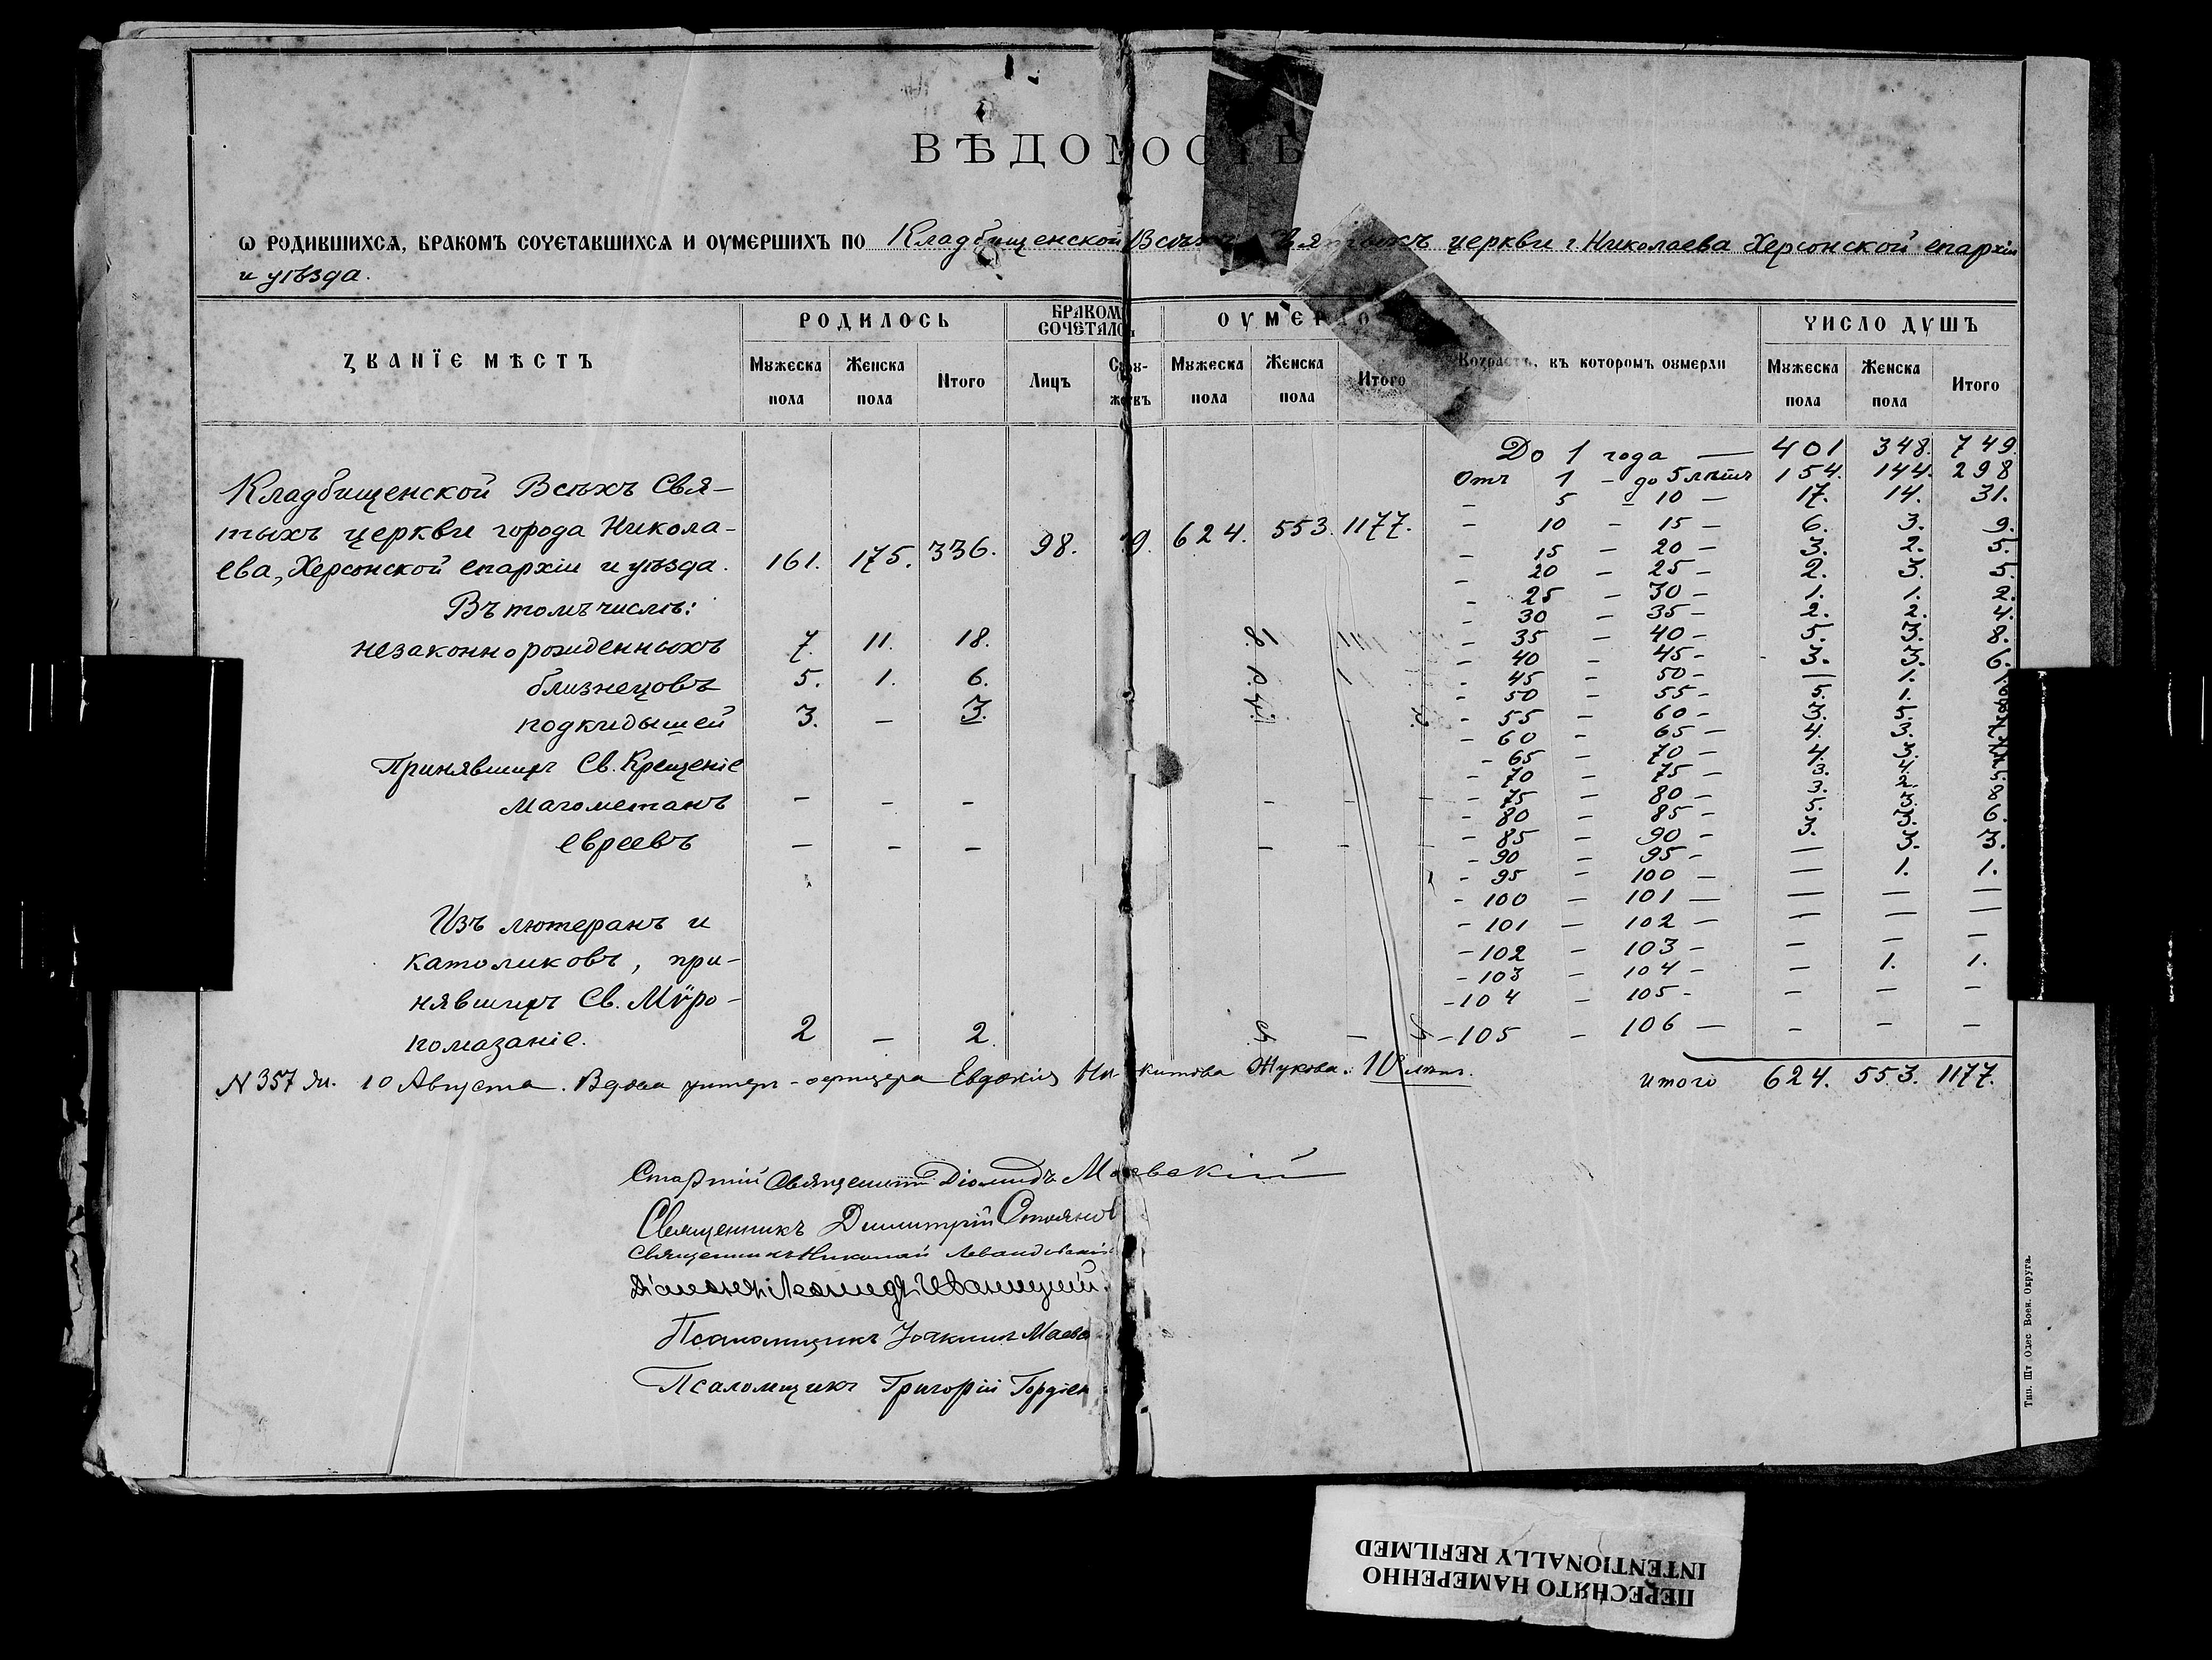 ВѢДОМОСТЬ
ѡ родившихсѧ, бракомъ сочетавшихсѧ и оумершихъ по Кладбищенской Всѣхъ Святыхъ церкви г. Николаева Херсонской епархіи
и уѣзда.
Званїе мѣстъ
Родилось
Бракомъ сочеталось
Оумерло
Возрастъ, въ которомъ оумерли
Число душъ
Мужеска пола Женска пола Итого Лицъ Супружествъ Мужеска пола Женска пола Итого Мужеска пола Женска пола Итого
Кладбищенской Всѣхъ Свя-
тыхъ церкви города Никола-
ева, Херсонской епархіи и уѣзда. 161. 175. 336. 98. 9. 624. 553. 1177.
Въ томъ числѣ:
незаконнорожденныхъ 7. 11. 18.
близнецовъ 5. 1. 6.
подкидышей 3. – 3.
Принявшихъ Св. Крещеніе
магометанъ – – –
евреевъ – – –
Изъ лютеранъ и
католиковъ, при-
нявшихъ Св. Мѵро-
помазаніе. 2 – 2.
До 1 года — 401 348. 749.
Отъ 1 – до 5 лѣтъ 154. 144. 298
– 5 – 10 – 17. 14. 31.
– 10 – 15 – 6. 3. 9.
– 15 – 20 – 3. 2. 5.
– 20 – 25 – 2. 3. 5.
– 25 – 30 – 1. 1. 2.
– 30 – 35 – 2. 2. 4.
– 35 – 40 – 5. 3. 8.
– 40 – 45 – 3. 3. 6.
– 45 – 50 – — 1.
– 50 – 55 – 5. 1.
– 55 – 60 – 3. 5.
– 60 – 65 – 4. 3.
– 65 – 70 – 4. 3.
– 70 – 75 – 3.
– 75 – 80 – 3.
– 80 – 85 – 5. 3. 8
– 85 – 90 – 3. 3. 6.
– 90 – 95 – — 3. 3.
– 95 – 100 – — 1. 1.
– 100 – 101 — — — —
– 101 – 102 — — — —
– 102 – 103 – – – –
– 103 – 104 – – 1. 1.
– 104 – 105 – – – –
– 105 – 106 — – – –
итого 624. 553. 1177.
N 357 10 Августа. Вдова унтеръ-офицера Евдокія Никитова Жукова.
Старшій Священникъ Діомидъ Маевскій
Священникъ Димитрій Стоянов
Священникъ Николай Левандовскій
Псаломщикъ
Псаломщикъ Григорій Гордіен
Тип. Шт Одес Воен. Округа.
ПЕРЕСНЯТО НАМЕРЕННО
INTENTIONALLY REFILMED